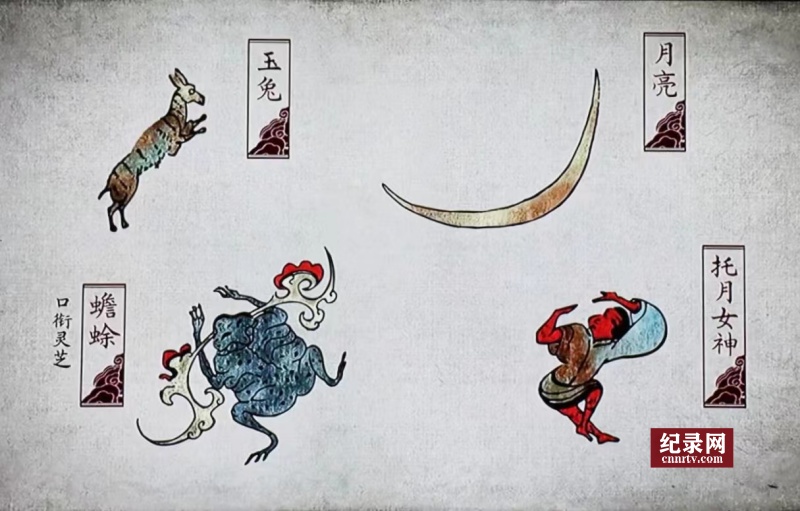 玉兔
月亮
蟾蜍
口衔灵芝
托月女神
纪录网
cnnrtv.com